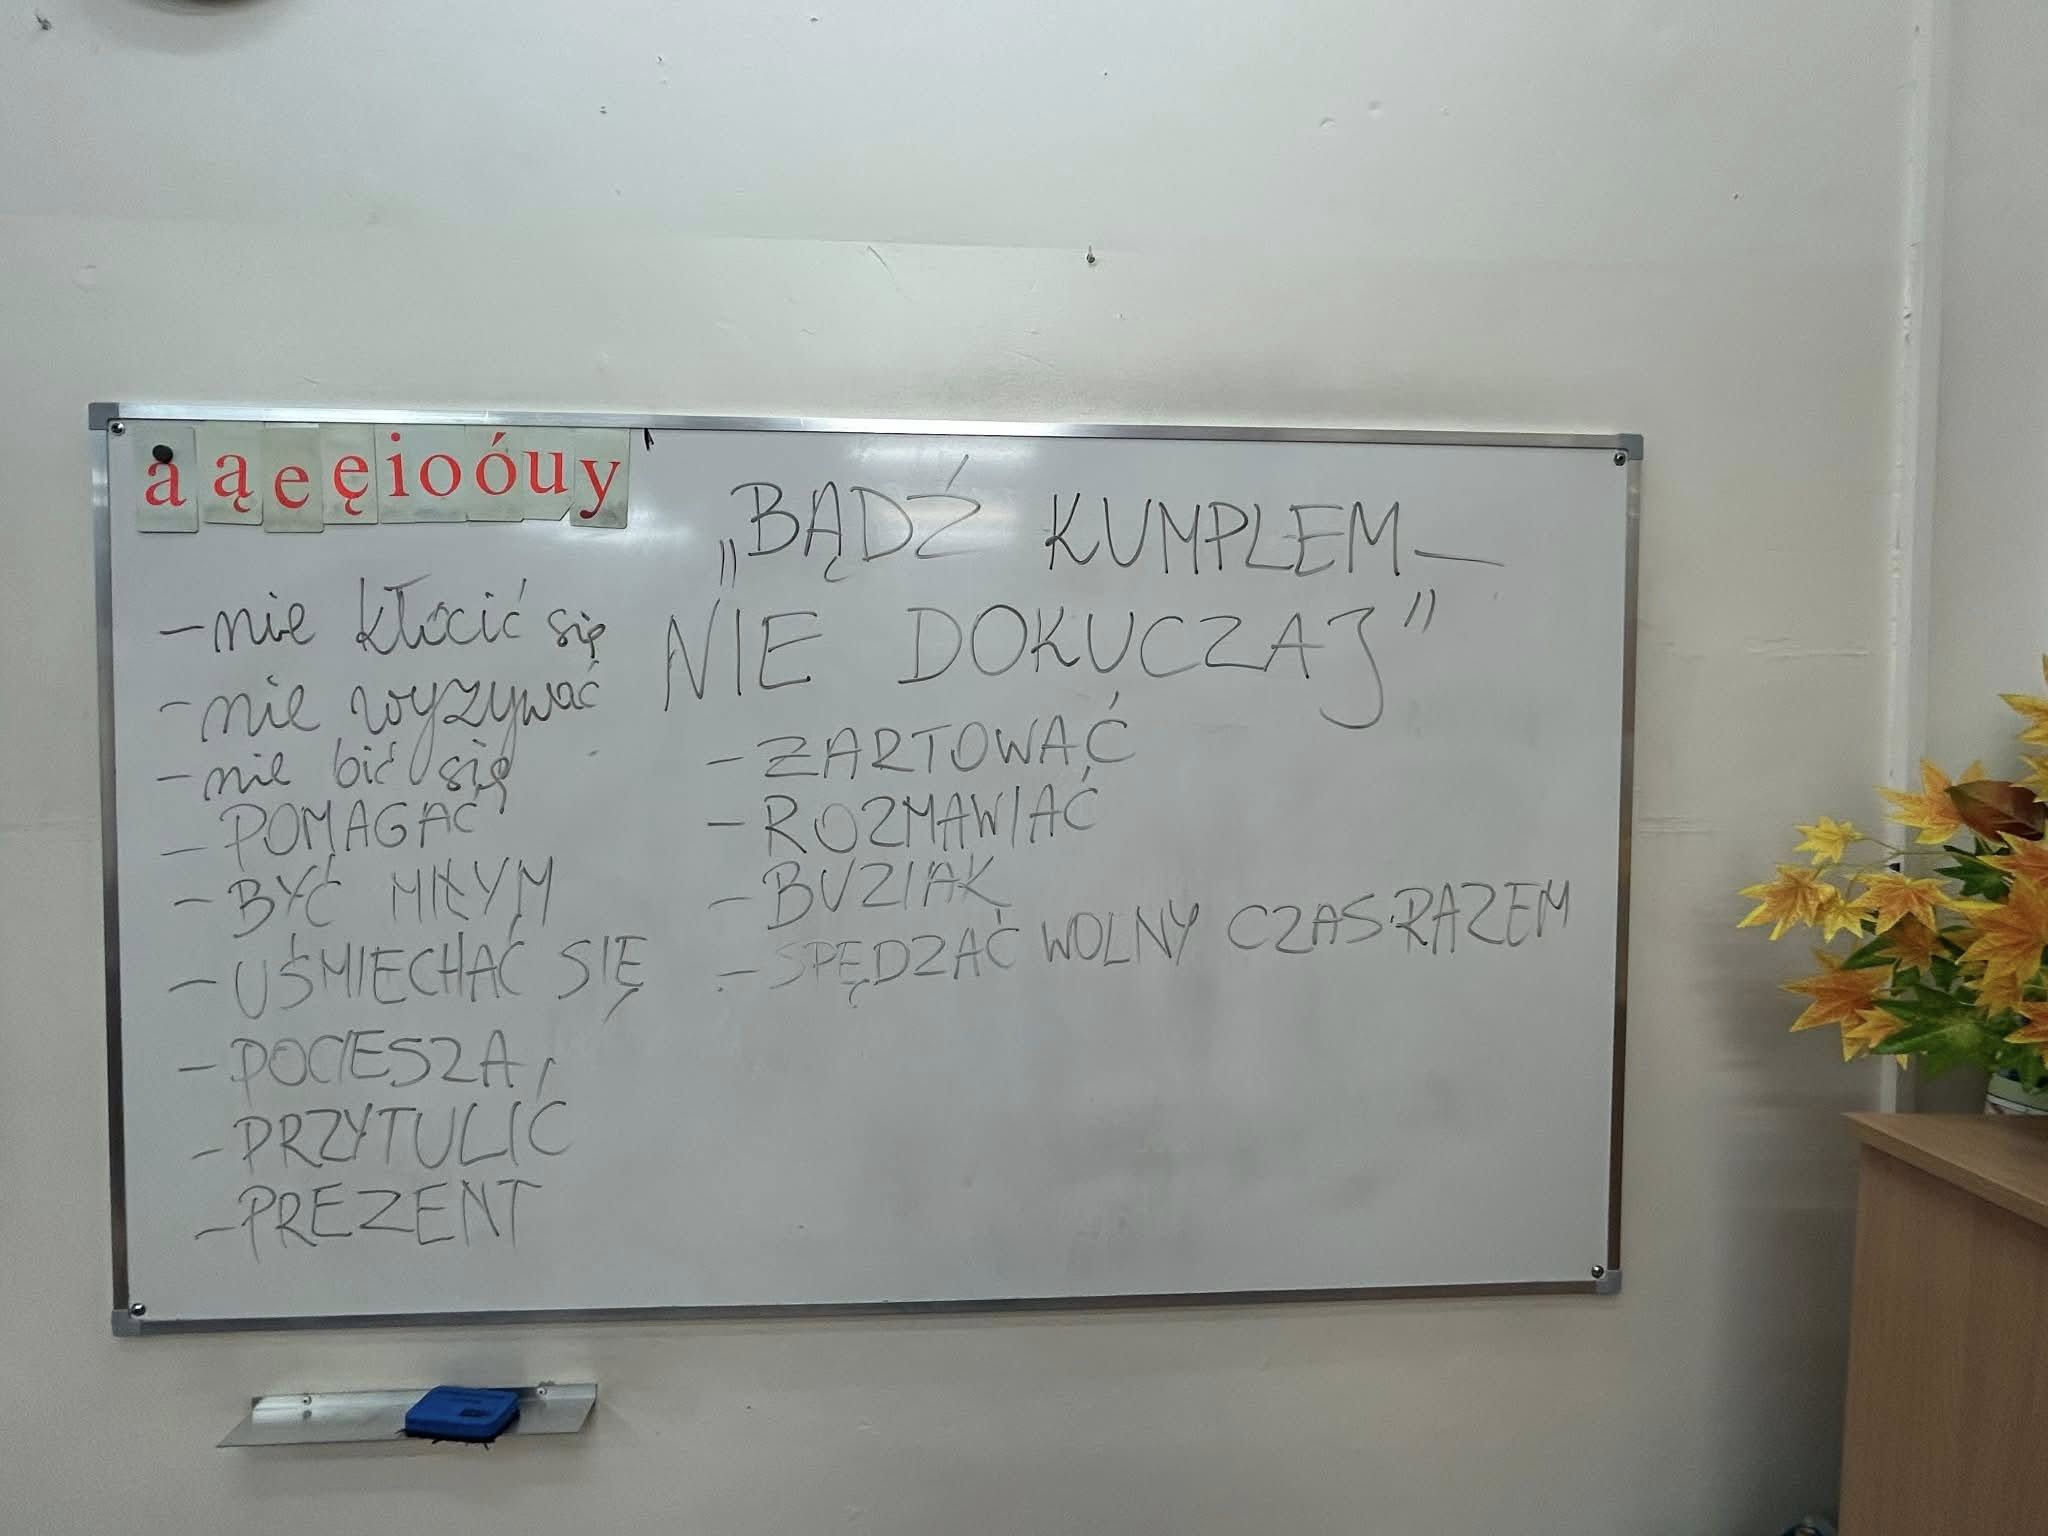 a ą e ę i o ó u y
„BĄDŹ KUMPLEM –
NIE DOKUCZAJ"
– nie kłócić się
– nie wyzywać
– nie bić się
– POMAGAĆ
– BYĆ MIŁYM
– UŚMIECHAĆ SIĘ
– POCIESZA,
– PRZYTULIĆ
– PREZENT
– ZARTOWAĆ
– ROZMAWIAĆ
– BUZIAK
– SPĘDZAĆ WOLNY CZAS RAZEM